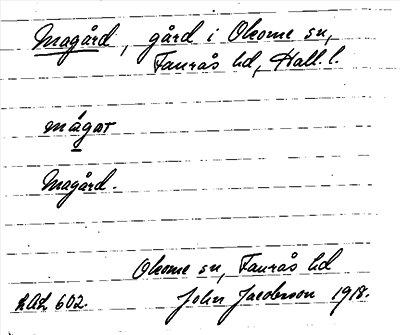 Magård, gård i Okome sn,
Faurås hd, Hall. l.
mágar
Magård.
Okome sn, Faurås hd
602. John Jacobsson 1918.